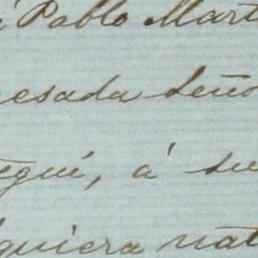 á Pablo Mart
esada Seño
egui, á su
quiera nat